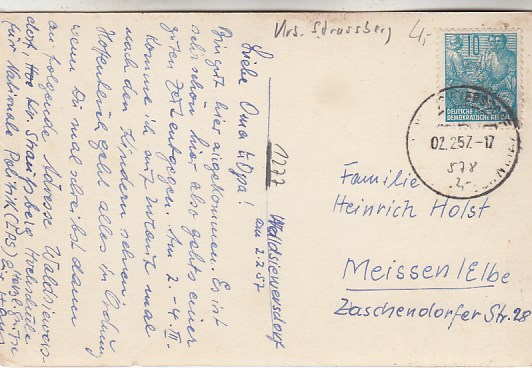 Krs. Strausberg
4,-
10
DEUTSCHE
DEMOKRATISCHE REPUBLIK
02.2.57.-17
578
2,-
1777
Waldsieversdorf
am 2.2.57
Liebe Oma u. Opa!
Bin gut hier angekommen. Es ist
sehr schön hier also gehts einer
guten Zeit entgegen. Am 2. - 4. III.
komme ich auf Urlaub mal
nach den Kindern sehen.
Hoffentlich geht alles in Ordnung
wenn Du mal schreibst dann
an folgende Adresse Waldsievers-
dorf Kr. Straußberg Hochschule
für Nationale Politik
Familie
Heinrich Holst
Meissen/Elbe
Zaschendorfer Str. 28